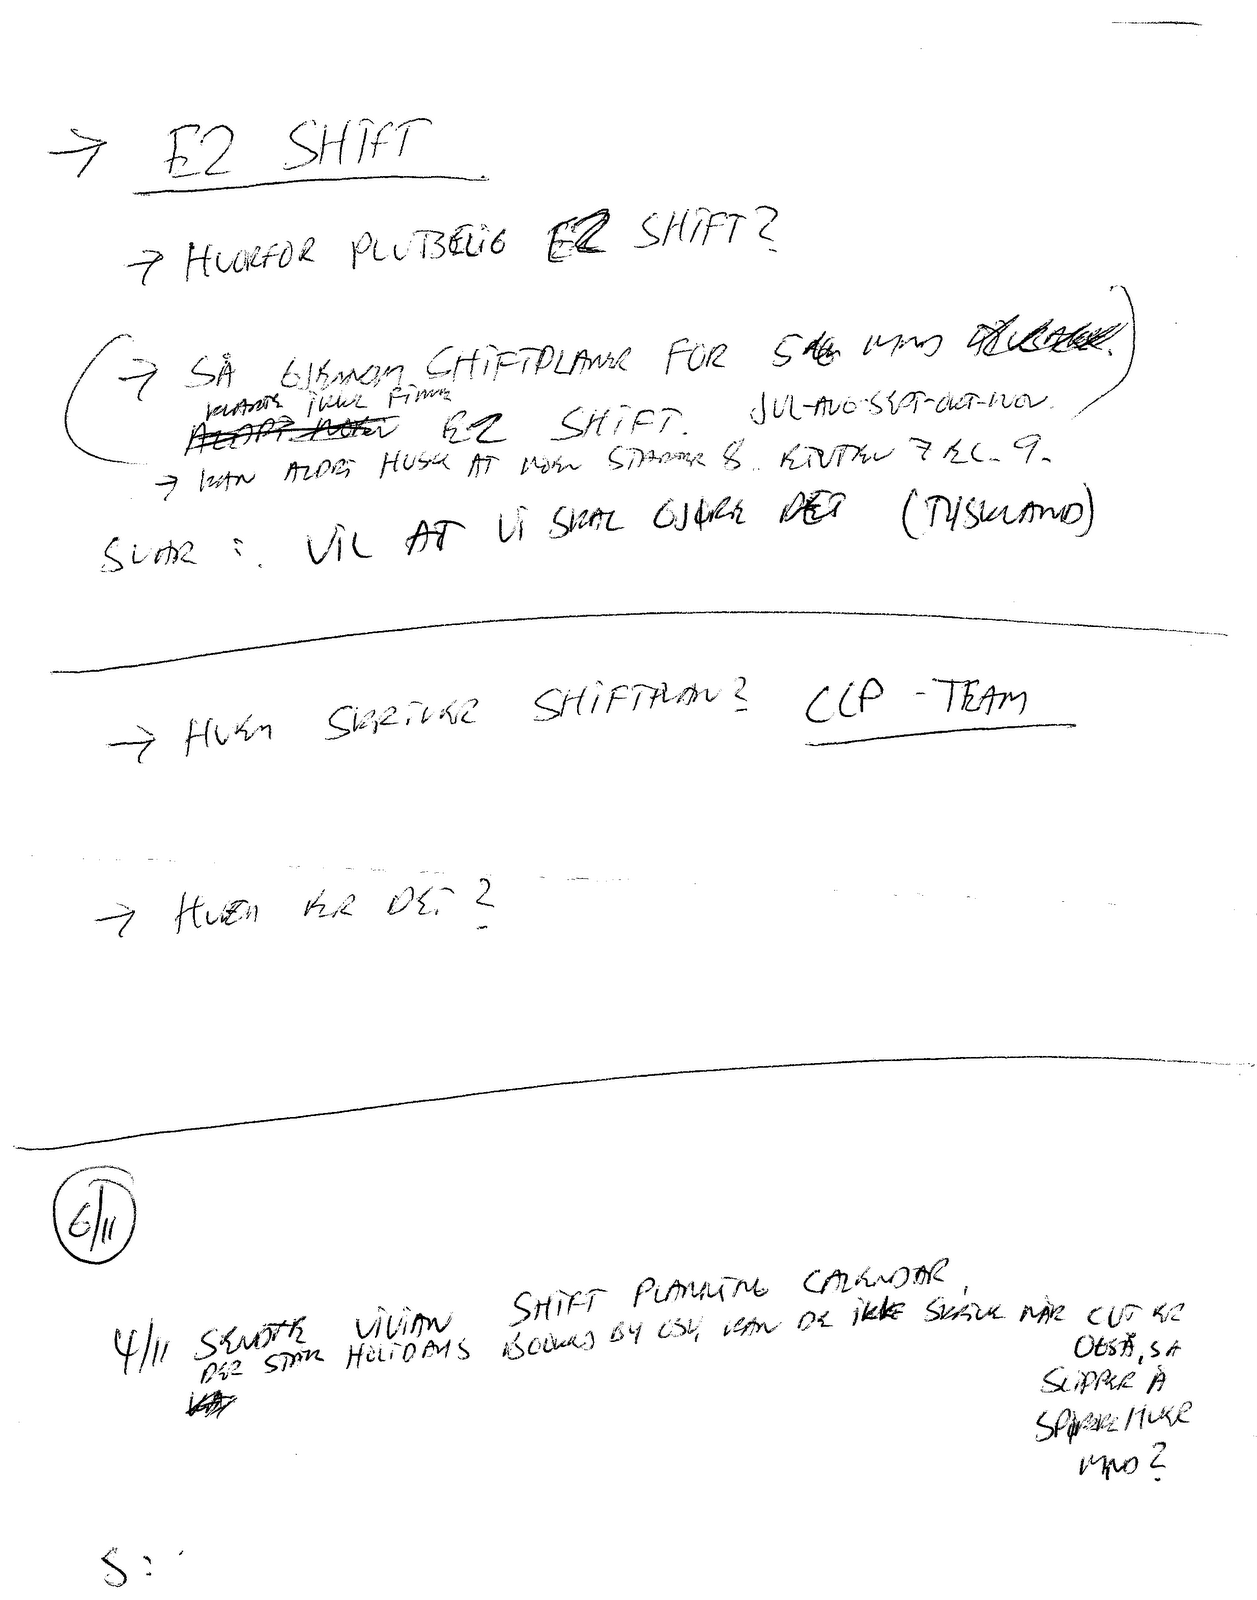 → E2 SHIFT
→ HVORFOR PLUTSELIG E2 SHIFT?
(→ SÅ GJENNOM SHIFTPLANER FOR 5 MND
KLARTE IKKE FINNE
E2 SHIFT. JUL-AUG-SEPT-OKT-NOV.)
→ KAN ALDRI HUSKE AT NOEN STARTER 8. ENTEN 7 EL. 9.
SVAR: VIL AT VI SKAL GJØRE DET (TYSKLAND)
→ HVEM SKRIVER SHIFTPLAN? CCP-TEAM
→ HVEM ER DET?
6/11
4/11 SENDTE VIVIAN SHIFT PLANNING CALENDAR,
DER STÅR HOLIDAYS BOOKED BY CSV, KAN DE IKKE SKRIVE NÅR CUT ER
OGSÅ, SÅ
SLIPPER Å
SPØRRE HVER
MND?
S: